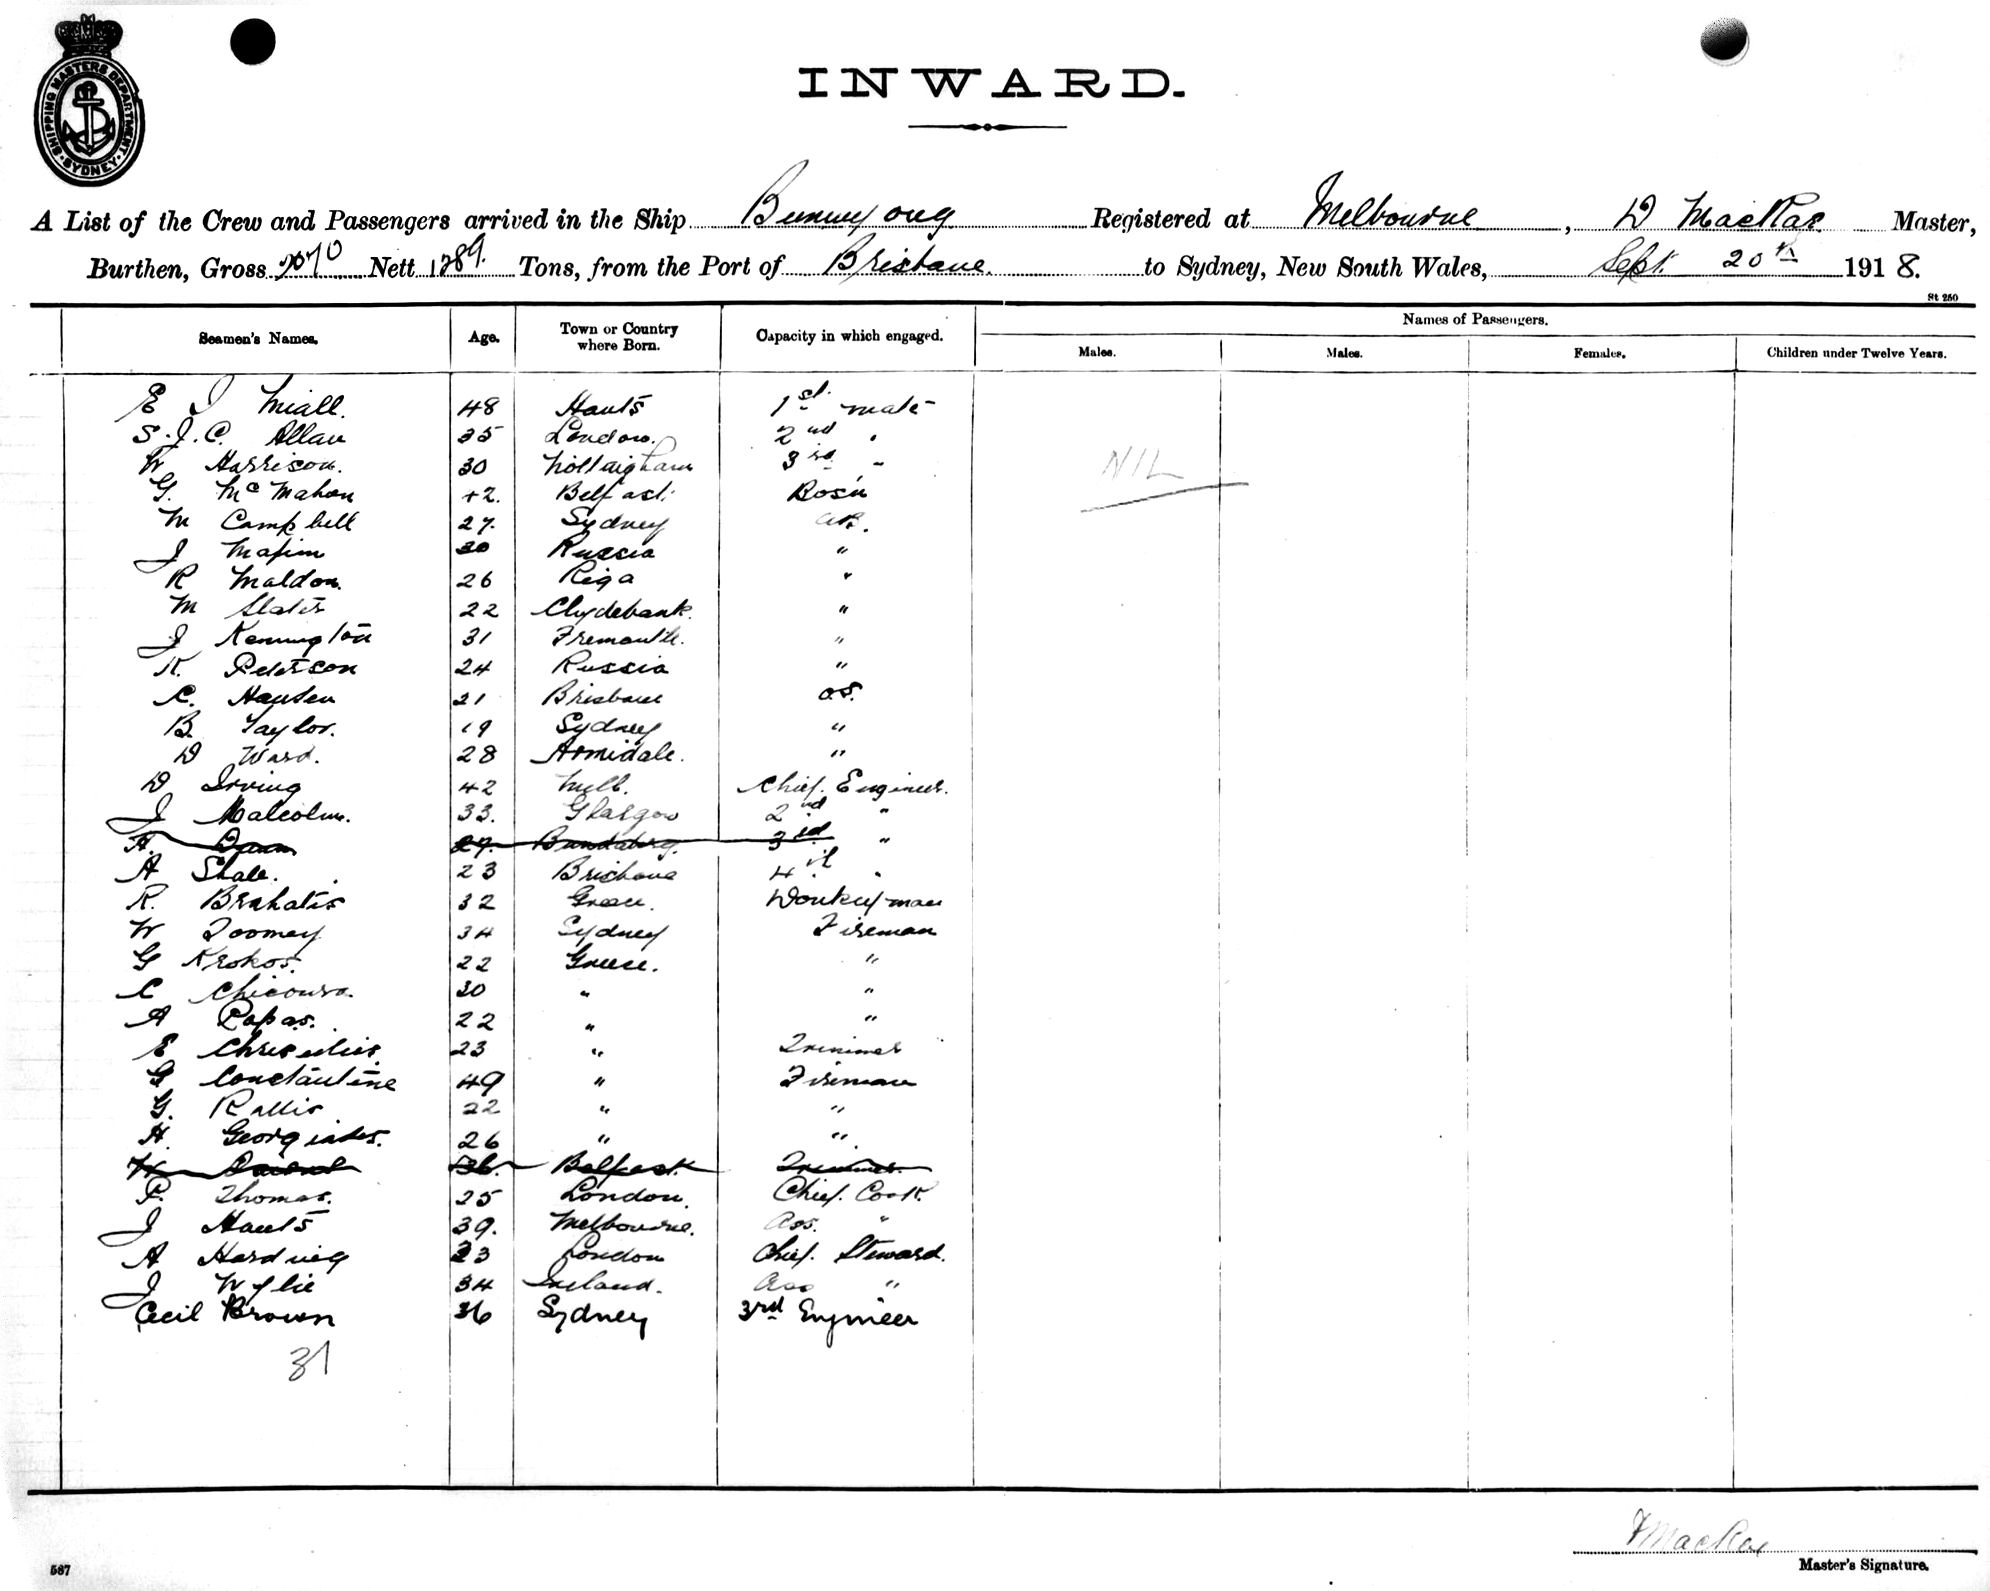 SHIPPING MASTERS DEPARTMENT
SYDNEY
INWARD.
A List of the Crew and Passengers arrived in the Ship Buninyong Registered at Melbourne, D MacRae Master,
Burthen, Gross 2070 Nett 1289. Tons, from the Port of Brisbane. to Sydney, New South Wales, Sept. 20th 1918.
St 250
Seamen's Names. Age. Town or Country where Born. Capacity in which engaged. Names of Passengers.
Males. Males. Females. Children under Twelve Years.
E J Miall. 48 Hants 1st mate
S. J. C. Allan 35 London. 2nd "
W Harrison. 30 Nottingham 3rd "
NIL
G. McMahon 42. Belfast. Bosn
M Campbell 27. Sydney AB.
J Maxim 30 Russia "
R Maldon. 26 Riga "
M Slater 22 Clydebank. "
J Kennington 31 Fremantle. "
K. Peterson 24 Russia "
C. Hansen 21 Brisbane OS.
B. Taylor. 19 Sydney "
D Ward. 28 Armidale. "
D Irving 42 Melb. Chief. Engineer.
J Malcolm. 33. Glasgow 2nd "
H. Dann 27. Bundaberg. 3rd "
A Shale. 23 Brisbane 4th "
R. Brahatis 32 Greece. Donkeyman
W Toomey 34 Sydney Fireman
G Krokos. 22 Greese. "
C 30 " "
A Papas. 22 " "
E 23 " Trimmer
G Constantine 49 " Fireman
G. Rallis 22 " "
H. Georgiades. 26 " "
W 36. Belfast. Trimmer.
P. Thomas. 25 London. Chief. Cook
J Hants 39. Melbourne. Ass. "
A Harding 23 London Chief. Steward.
J Wylie 34 Ireland. Ass "
Cecil Brown 36 Sydney 3rd Engineer
31
D MacRae
Master's Signature.
587